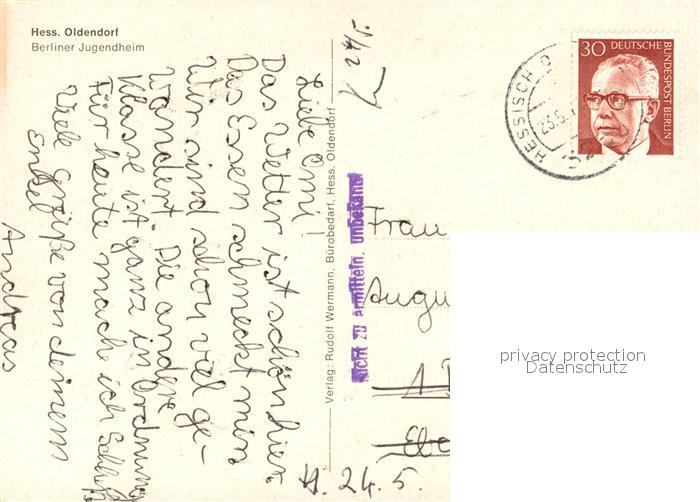 Hess. Oldendorf
Berliner Jugendheim
Liebe Omi!
Das Wetter ist schön hier.
Das Essen schmeckt mir.
Wir sind schon viel ge-
wandert. Die andere
Klasse ist ganz in Ordnung
Für heute mache ich Schluß
Viele Grüße von deinem
Enkel
Andreas
Verlag: Rudolf Wermann, Bürobedarf, Hess. Oldendorf
Nicht zu ermitteln. unbekannt
24/5.
30 DEUTSCHE BUNDESPOST BERLIN
HESSISCH O
23.5.
Frau
Augu
1
H. 24.5.
privacy protection
Datenschutz